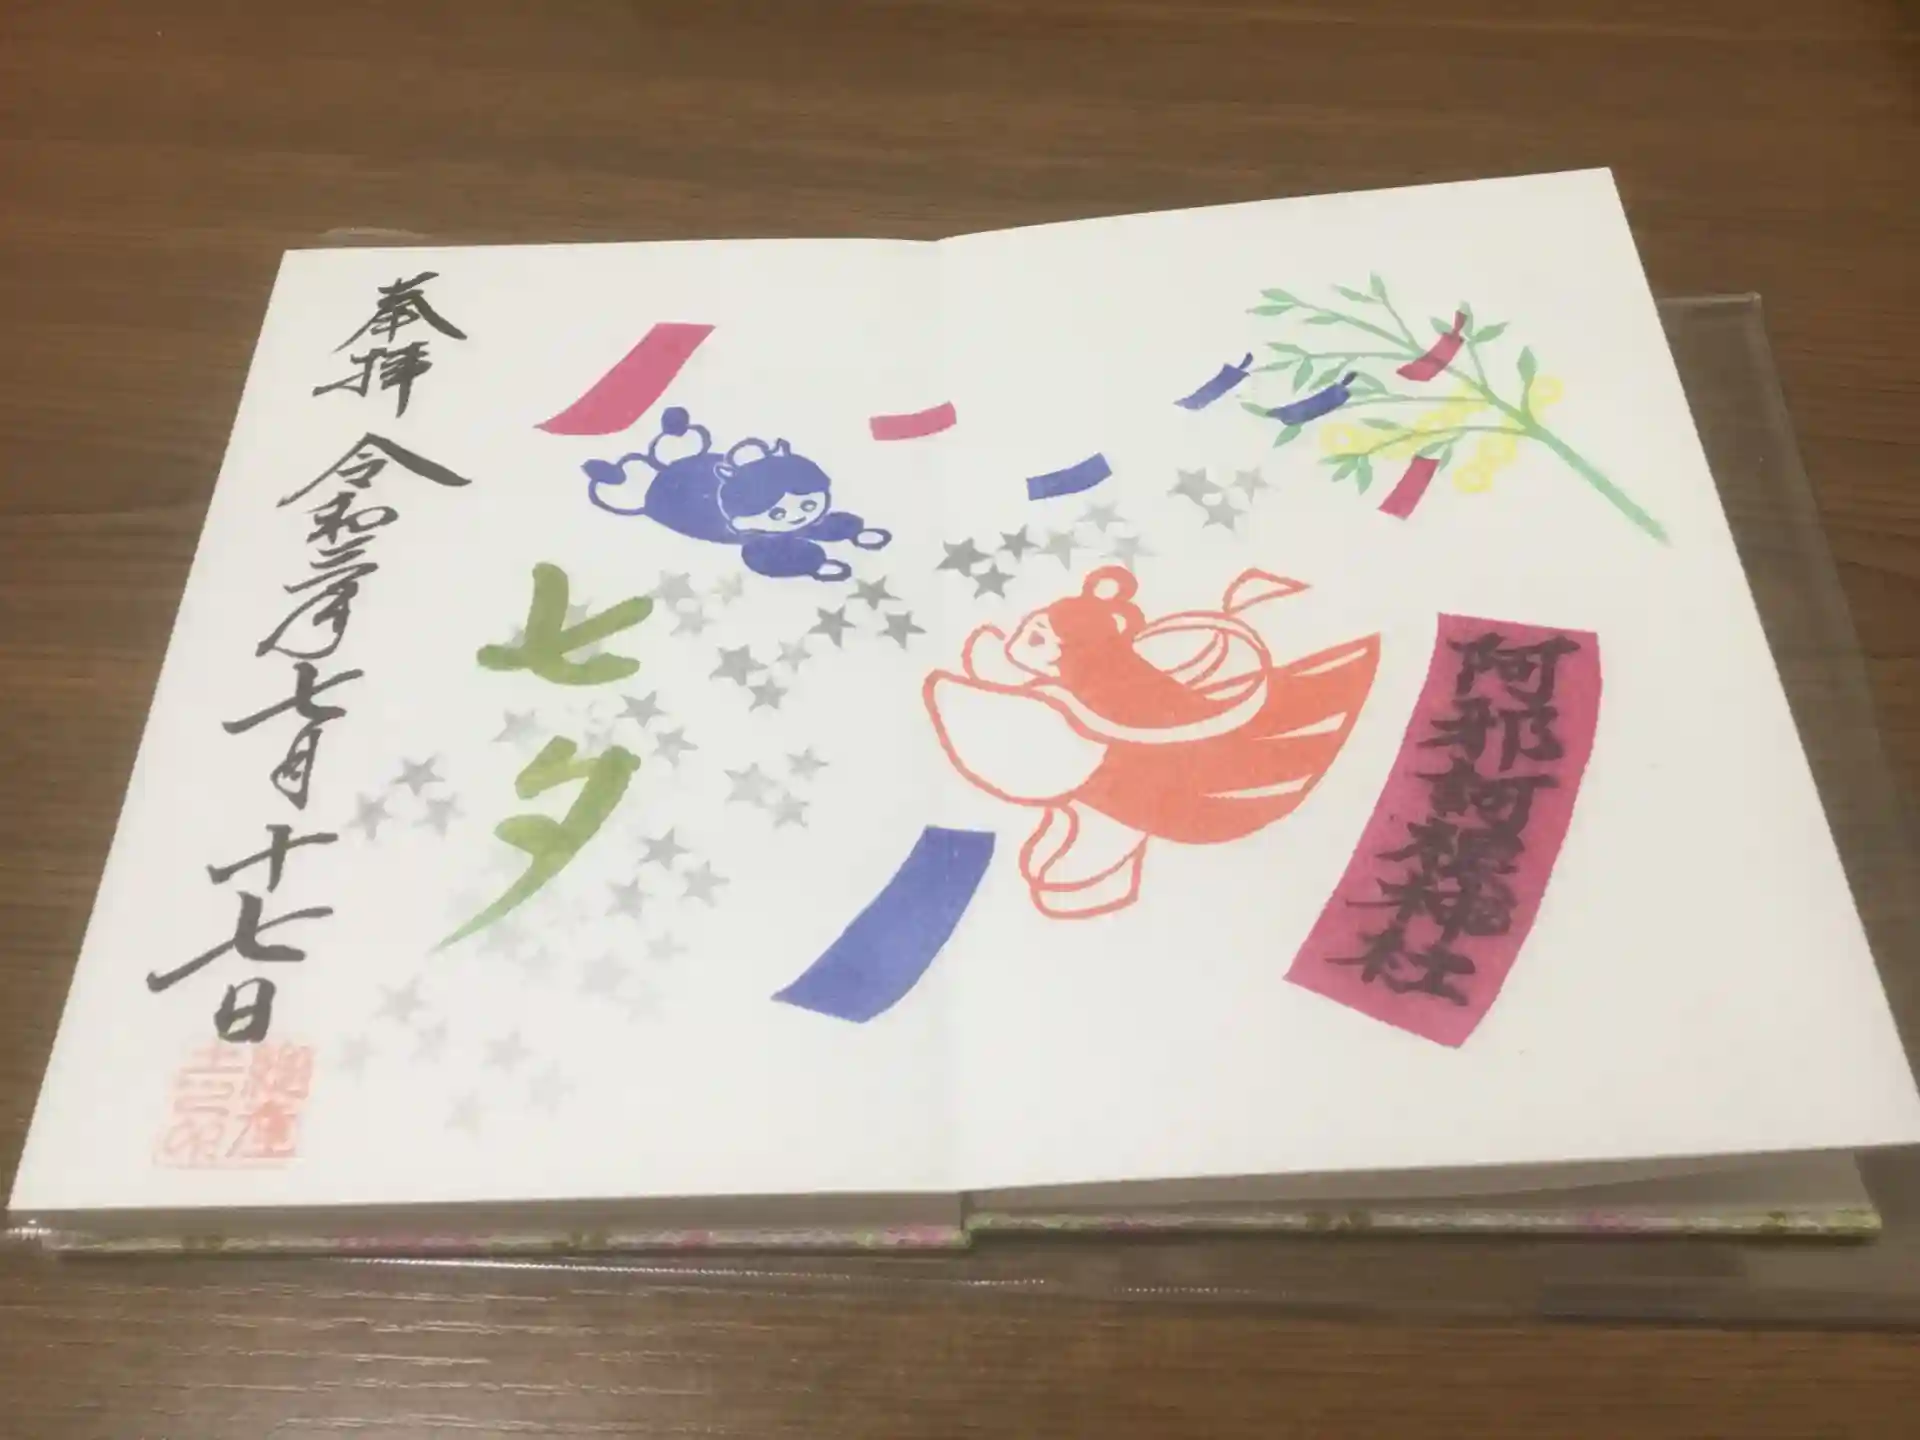 阿邪訶根神社
七夕
奉拝
令和三年七月十七日